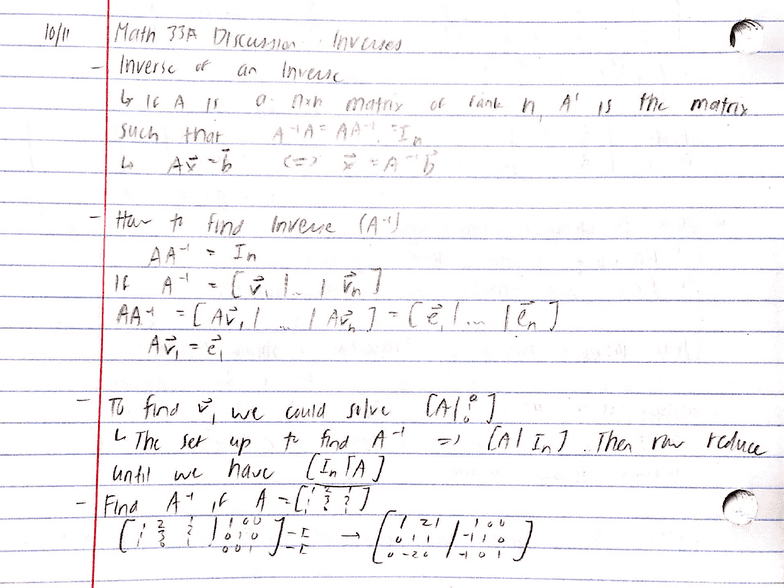 10/11 Math 33A Discussion Inverses
- Inverse of an Inverse
↳ If A is a nxn matrix of rank n, A' is the matrix
such that A⁻¹A = AA⁻¹ = Iₙ
↳ Ax⃗ = b⃗ <=> x⃗ = A⁻¹b⃗
- How to find Inverse (A⁻¹)
AA⁻¹ = Iₙ
If A⁻¹ = [v⃗₁ | ... | v⃗ₙ]
AA⁻¹ = [Av⃗₁ | ... | Av⃗ₙ] = [e⃗₁ | ... | e⃗ₙ]
Av⃗₁ = e⃗₁
- To find v⃗₁ we could solve [A |
↳ The set up to find A⁻¹ => [A | Iₙ]. Then row reduce
until we have [Iₙ | A]
- Find A⁻¹ if A =
[1 2 1 | 1 0 0] → [1 2 1 | 1 0 0]
0 1 0] -I 0 1 1 | -1 1 0
0 0 1] -I 0 -2 0 | -1 0 1]